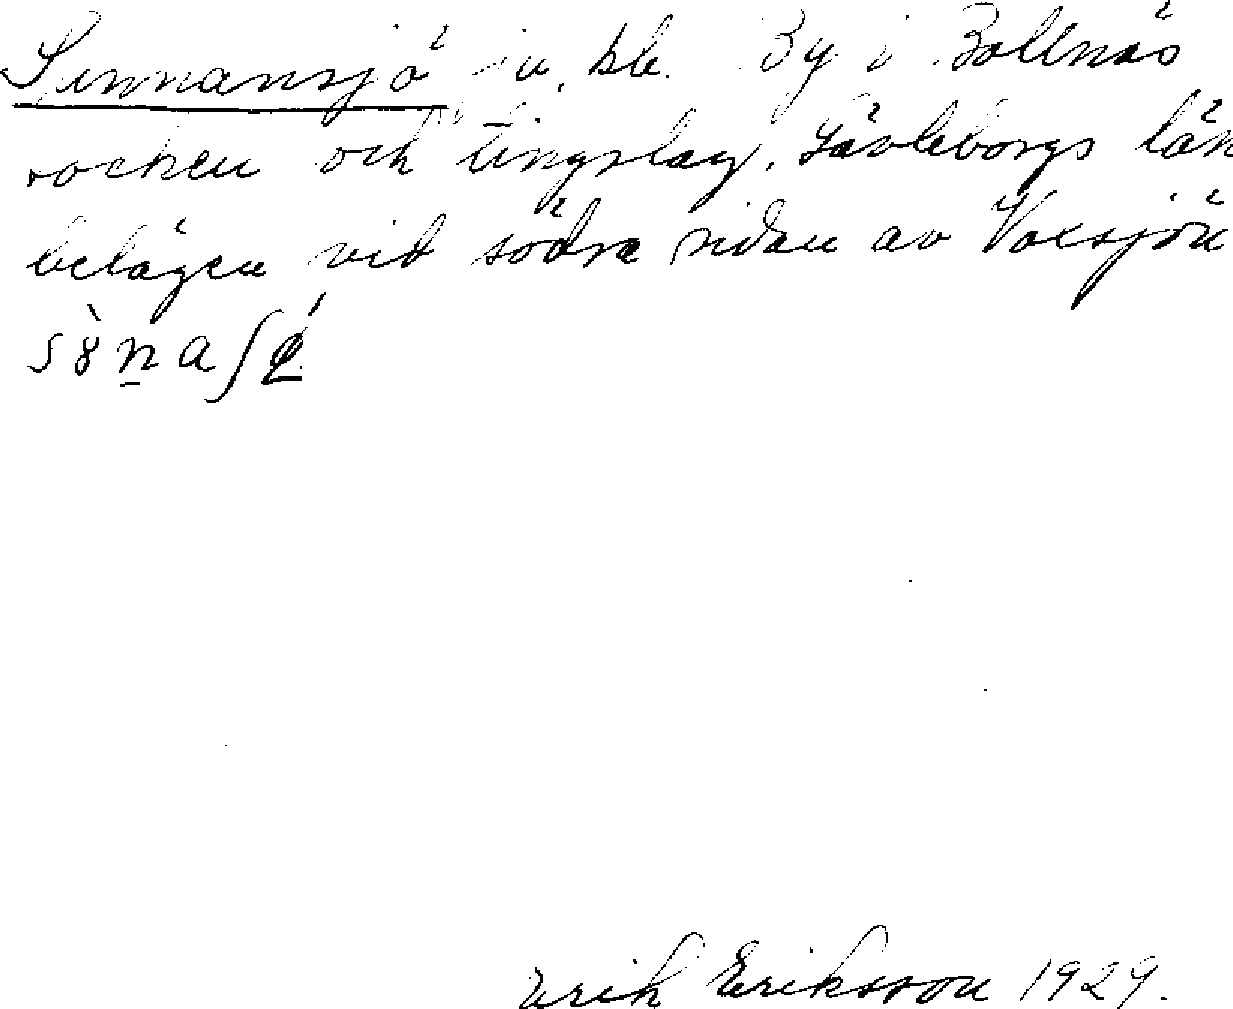 Sunnansjö By i Bollnäs
socken och tingslag, Gävleborgs län
belägen vid södra sidan av Voxsjön
Erik Eriksson 1929.